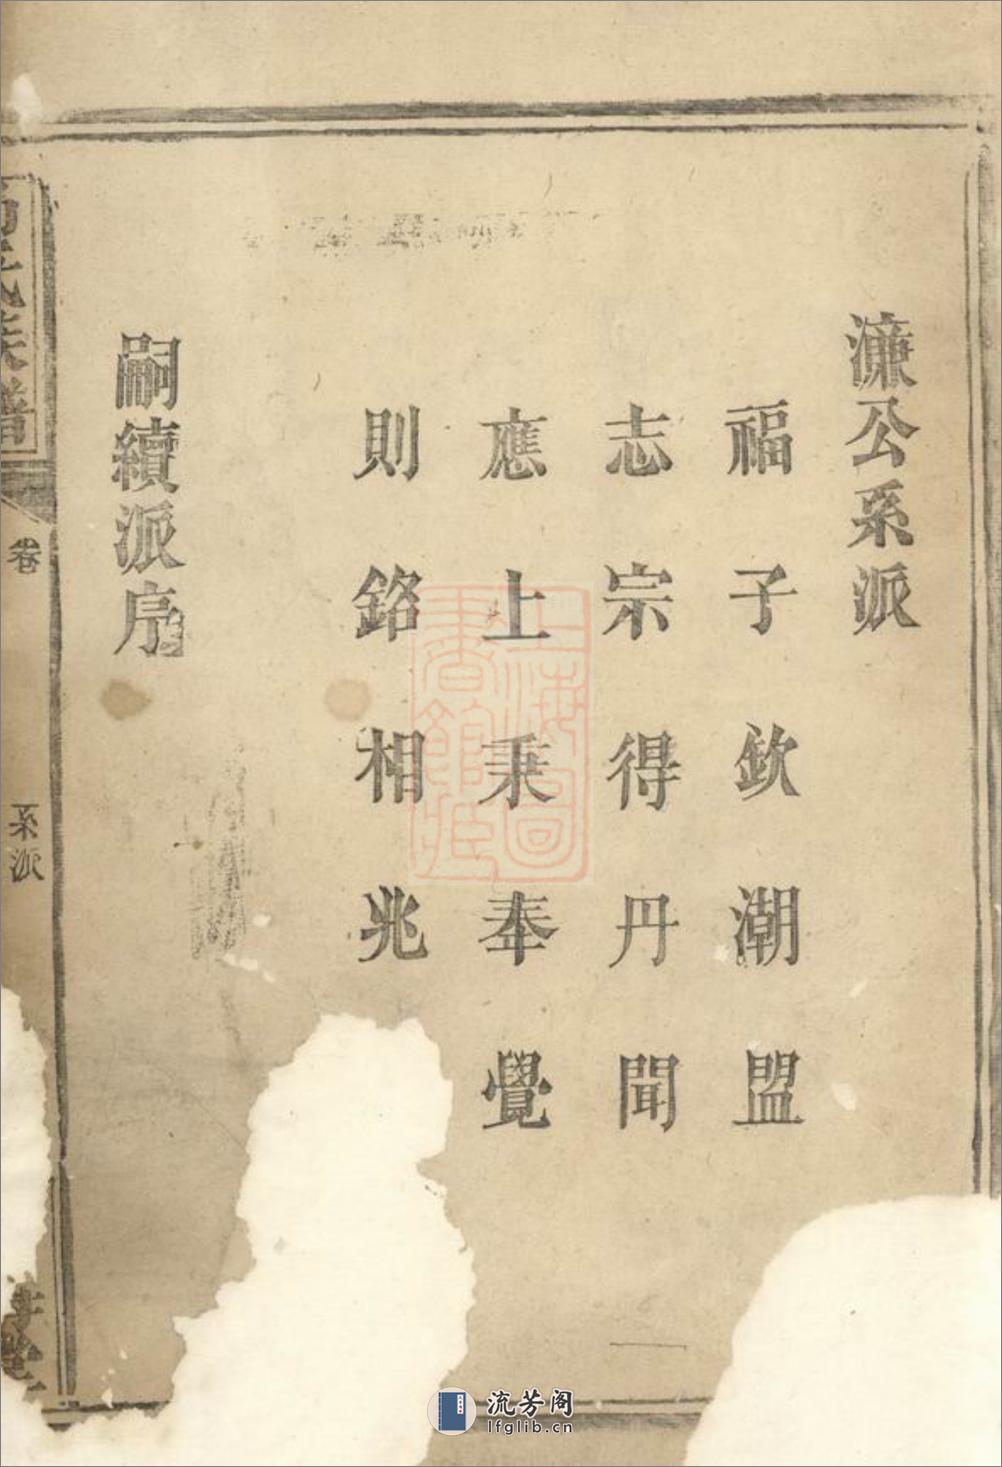 濂公系派
福子欽潮盟
志宗得丹聞
應上秉奉覺
則銘相兆
嗣續派序
氏族譜
卷
系派
上海圖書館藏
流芳阁
lfglib.cn